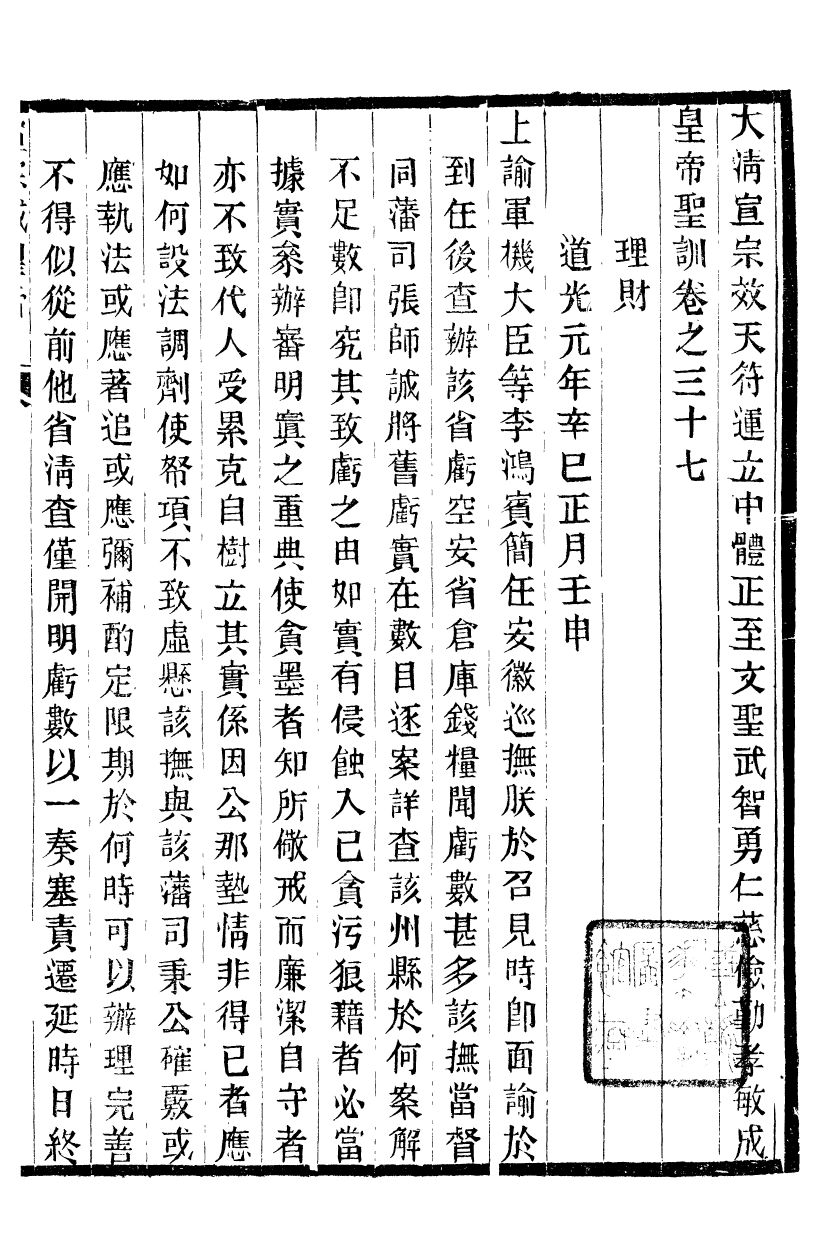 大清宣宗效天符運立中體正至文聖武智勇仁慈儉勤孝敏成
皇帝聖訓卷之三十七
理財
道光元年辛巳正月壬申
上諭軍機大臣等李鴻賓簡任安徽巡撫朕於召見時卽面諭於
到任後查辦該省虧空安省倉庫錢糧聞虧數甚多該撫當督
同藩司張師誠將舊虧實在數目逐案詳查該州縣於何案解
不足數卽究其致虧之由如實有侵蝕入已貪污狼藉者必當
據實叅辦審明寘之重典使貪墨者知所儆戒而廉潔自守者
亦不致代人受累克自樹立其實係因公那墊情非得已者應
如何設法調劑使帑項不致虛懸該撫與該藩司秉公確覈或
應執法或應著追或應彌補酌定限期於何時可以辦理完善
不得似從前他省清查僅開明虧數以一奏塞責遷延時日終